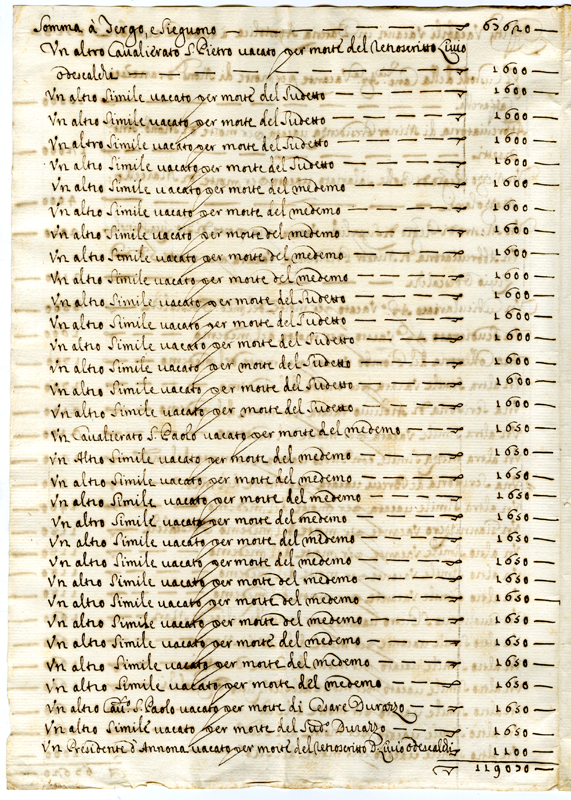 Somma à Tergo, e Sieguono — — — — 67620 —
Vn altro Cavalierato S. Pietro vacato per morte del Retroscritto Livio
odescalchi — — — — — — — — 1600 —
Vn altro Simile vacato per morte del Sudetto — — — — 1600 —
Vn altro Simile vacato per morte del Sudetto — — — — 1600 —
Vn altro Simile vacato per morte del Sudetto — — — — 1600 —
Vn altro Simile vacato per morte del Sudetto — — — — 1600 —
Vn altro Simile vacato per morte del medemo — — — — 1600 —
Vn altro Simile vacato per morte del medemo — — — — 1600 —
Vn altro Simile vacato per morte del medemo — — — — 1600 —
Vn altro Simile vacato per morte del medemo — — — — 1600 —
Vn altro Simile vacato per morte del medemo — — — — 1600 —
Vn altro Simile vacato per morte del Sudetto — — — — 1600 —
Vn altro Simile vacato per morte del Sudetto — — — — 1600 —
Vn altro Simile vacato per morte del Sudetto — — — — 1600 —
Vn altro Simile vacato per morte del Sudetto — — — — 1600 —
Vn altro Simile vacato per morte del Sudetto — — — — 1600 —
Vn altro Simile vacato per morte del Sudetto — — — — 1600 —
Vn Cavalierato S. Paolo vacato per morte del medemo — — 1650 —
Vn Altro Simile vacato per morte del medemo — — — — 1650 —
Vn altro Simile vacato per morte del medemo — — — — 1650 —
Vn altro Simile vacato per morte del medemo — — — — 1650 —
Vn altro Simile vacato per morte del medemo — — — — 1650 —
Vn altro Simile vacato per morte del medemo — — — — 1650 —
Vn altro Simile vacato per morte del medemo — — — — 1650 —
Vn altro Simile vacato per morte del medemo — — — — 1650 —
Vn altro Simile vacato per morte del medemo — — — — 1650 —
Vn altro Simile vacato per morte del medemo — — — — 1650 —
Vn altro Simile vacato per morte del medemo — — — — 1650 —
Vn altro Simile vacato per morte del medemo — — — — 1650 —
Vn altro Simile vacato per morte del medemo — — — — 1650 —
Vn altro Cau.º S. Paolo vacato per morte di Cesare Durazzo — — 1650 —
Vn altro Simile vacato per morte del Sud.º Durazzo — — — 1650 —
Vn Presidente d'Annona vacato per morte del Retroscritto D. Livio Odescaldi 1100 —
119070 —